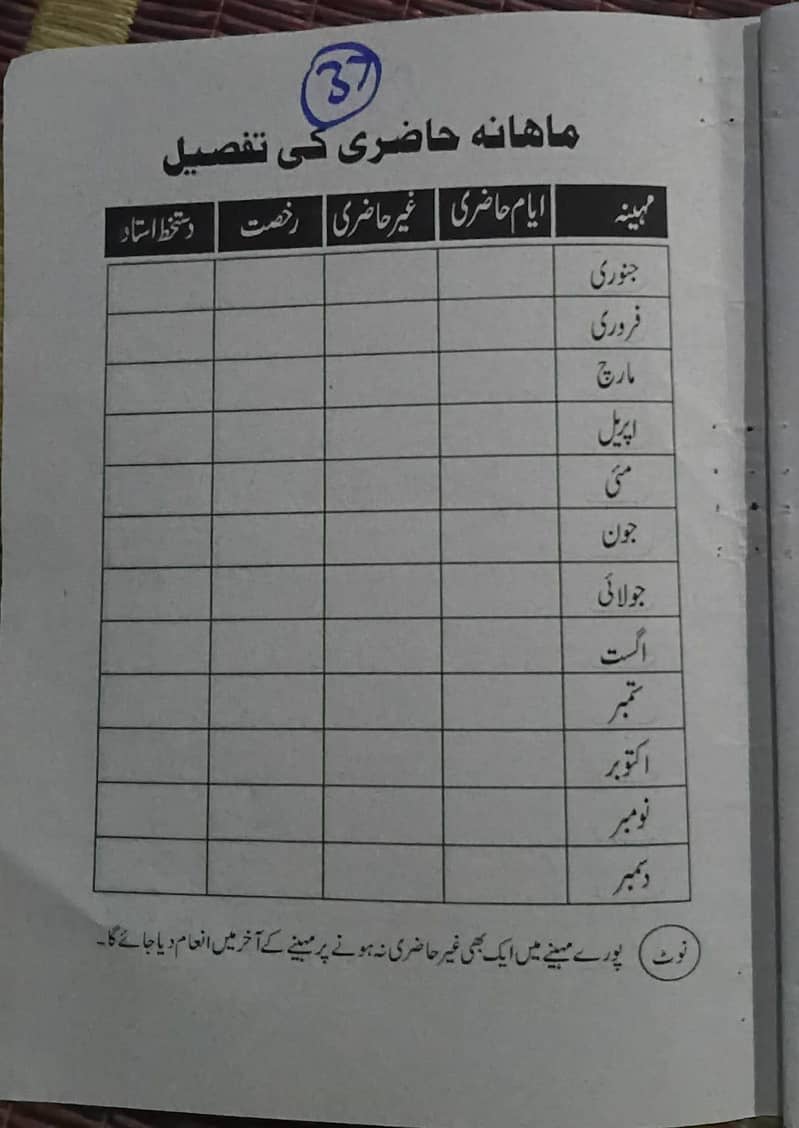 37
ماهانه حاضری کی تفصیل
مہینہ ایام حاضری غیر حاضری رخصت دستخط استاد
جنوری
فروری
مارچ
اپریل
مئی
جون
جولائی
اگست
ستمبر
اکتوبر
نومبر
دسمبر
نوٹ پورے مہینے میں ایک بھی غیر حاضری نہ ہونے پر مہینے کے آخر میں انعام دیا جائے گا۔